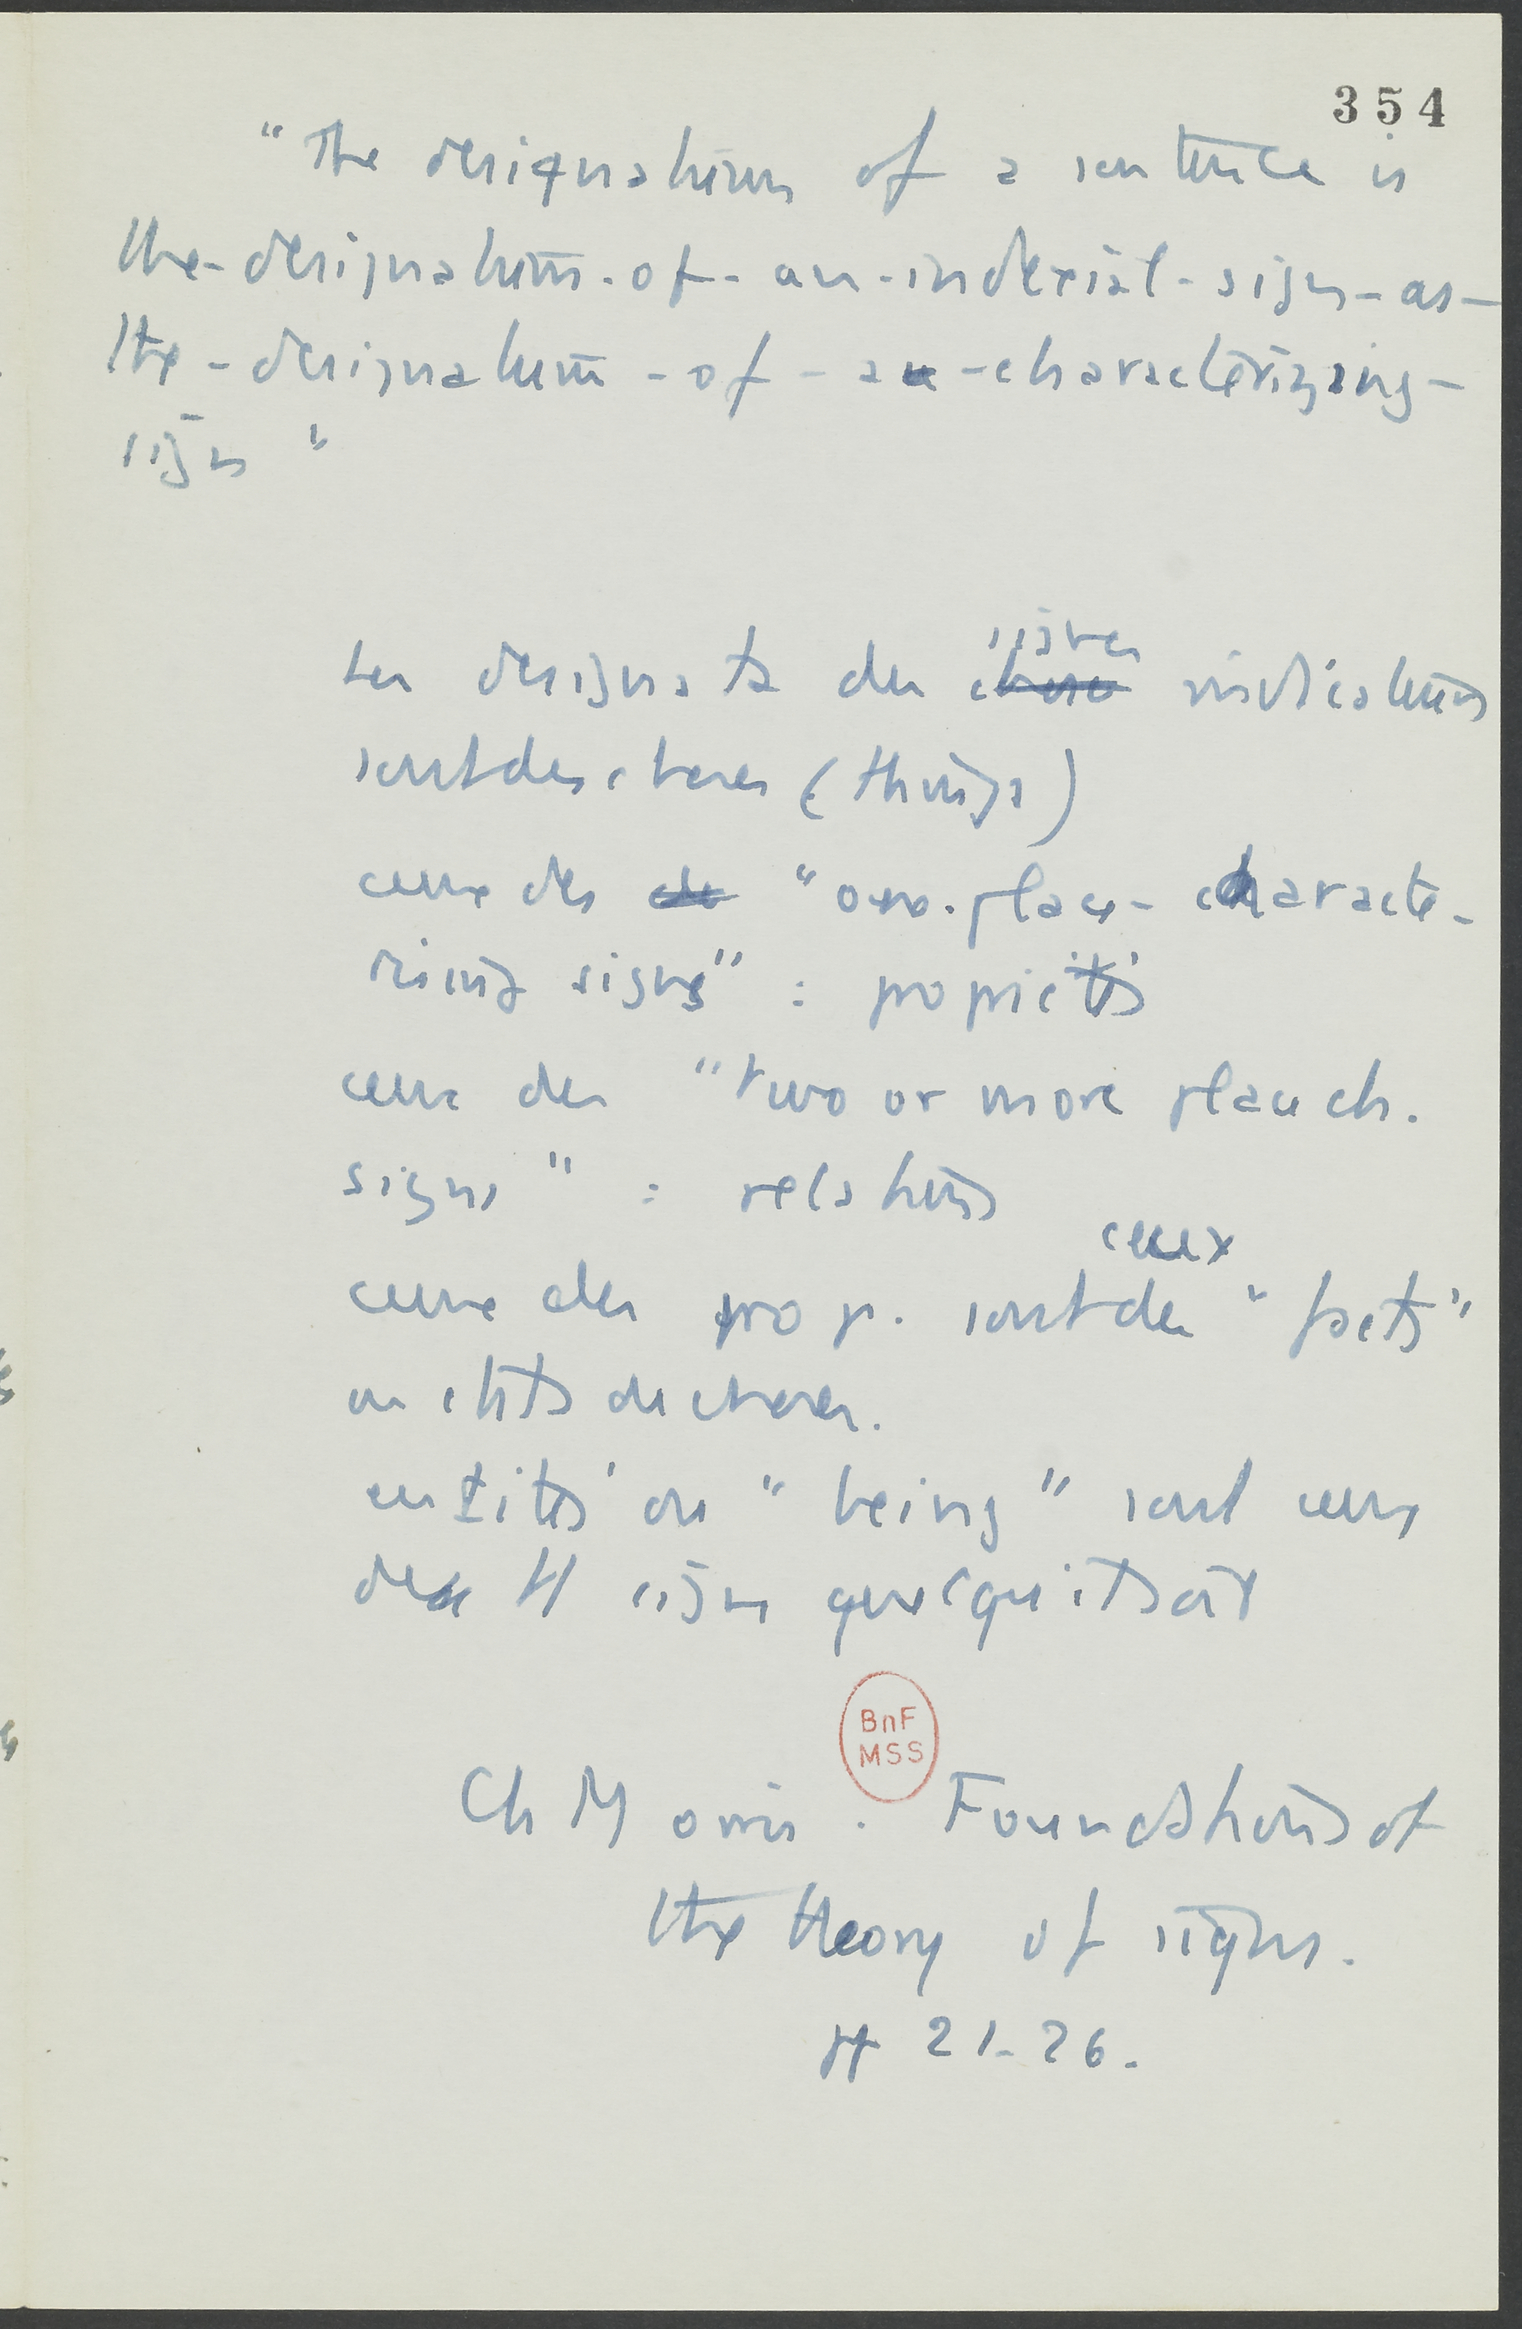 354
"The designatum of a sentence is
the-designatum-of-an-indexial-sign-as-
the-designatum-of-a-characterizing-
sign"
signes
Les designata des chose indicateurs
sont des choses (things)
ceux des de "one-place-characte-
rizing signs" : propriétés
ceux des "two or more place ch.
signs" : relations
ceux
ceux des prop. sont des "facts"
ou états de choses.
entités ou "being" sont ceux
de tt signe quel qu'il soit
BnF
MSS
Ch Morris. Foundations of
the theory of signs.
pp 21-26.